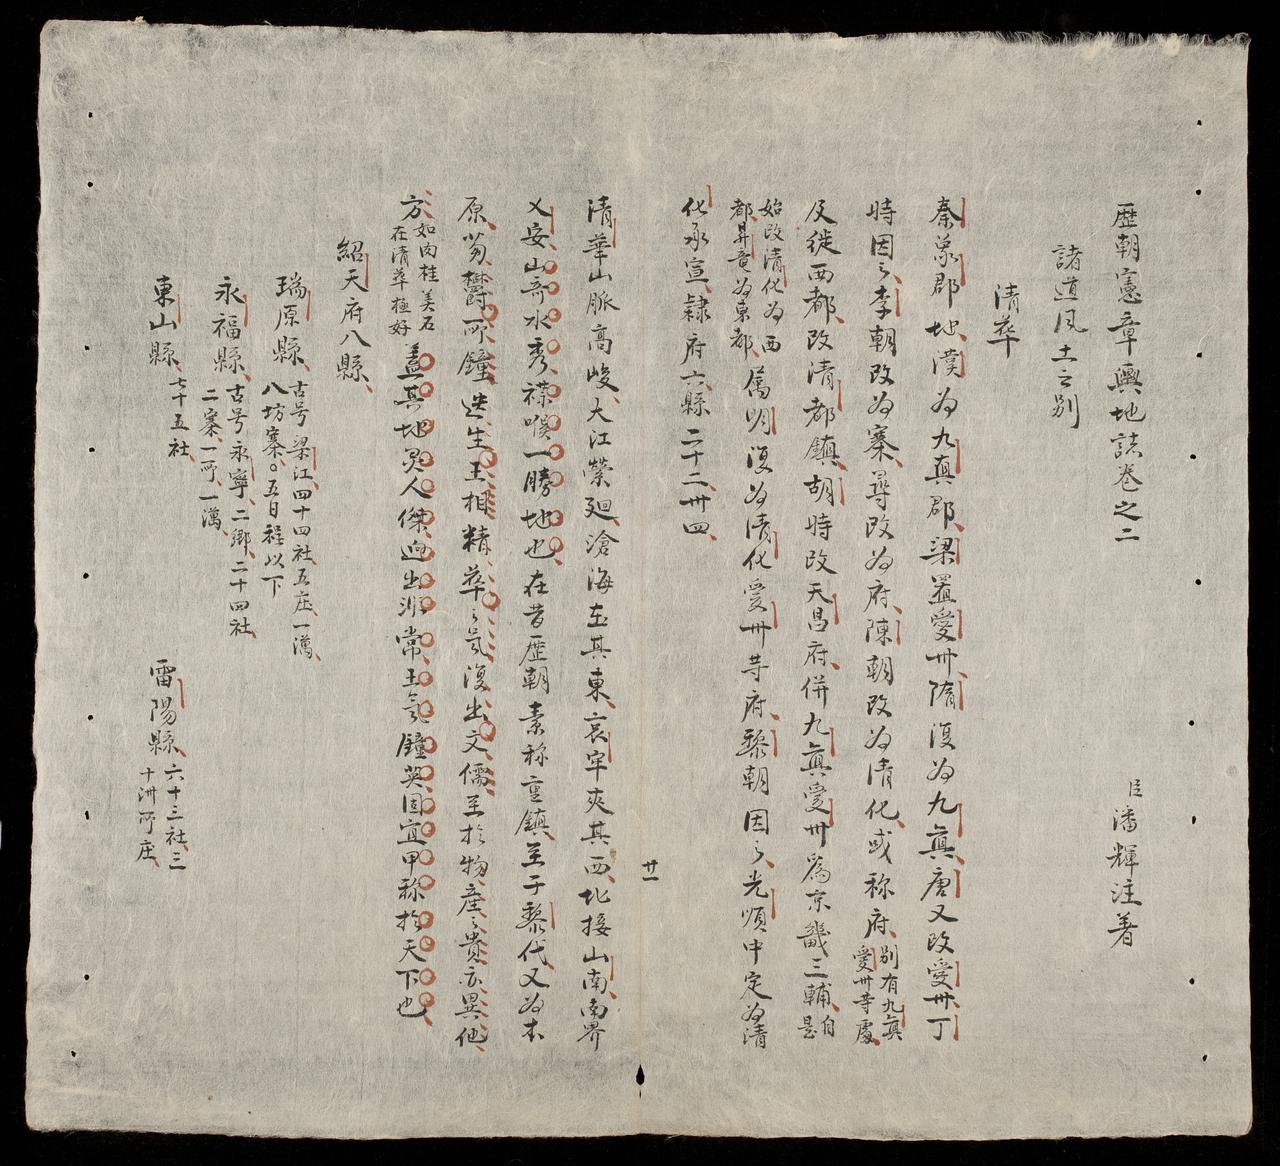 歷朝憲章輿地誌卷之二
臣潘輝注著
諸道风土之別
清華
秦象郡地漢为九真郡梁置愛州隋復为九真唐又改愛州丁
時因之李朝改为寨尋改为府陳朝改为清化或称府別有九真愛州等處
及徙西都改清都鎮胡時改天昌府併九真愛州為京畿三輔自是
始改清化为西都昇竜为東都屬明復为清化愛州等府黎朝因之光順中定为清
化承宣隸府六縣二十二州四
廿一
清華山脈高峻大江縈廻滄海在其東哀牢夾其西北接山南南界
乂安山奇水秀襟喉一勝地也在昔歷朝素称重鎮至于黎代又为本
原葱欝所鍾迭生王相精華之氣復出文儒至於物產之貴亦異他
方如肉桂美石在清華極好蓋其地灵人傑迥出非常王氣鐘英固宜甲称於天下也
紹天府八縣
瑞原縣古号梁江四十四社五庄一萬八坊寨。五日程以下
永福縣古号永寧二鄉二十四社二寨一所一萬
東山縣七十五社
雷陽縣六十三社三十洲所庄